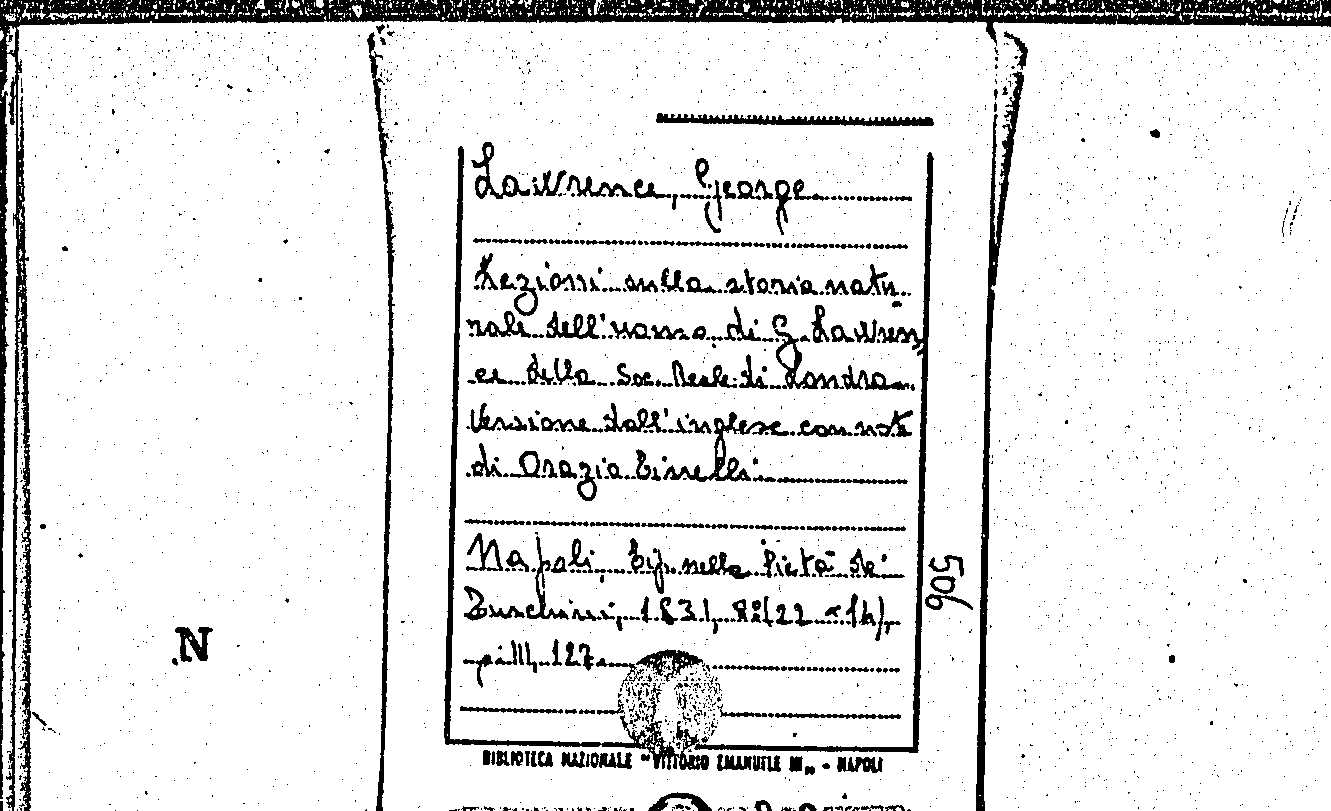 Lawrence, George
Lezioni sulla storia natu-
rale dell'uomo di G. Lawren,,
ce della Soc. Reale di Londra
Versione dall'inglese con note
di Orazio
Napoli, Tip. nella Pietà de'
Turchini, 1831, 8º (22 × 14),
p. III, 127.
506
N
BIBLIOTECA NAZIONALE "VITTORIO EMANUELE III„ - NAPOLI